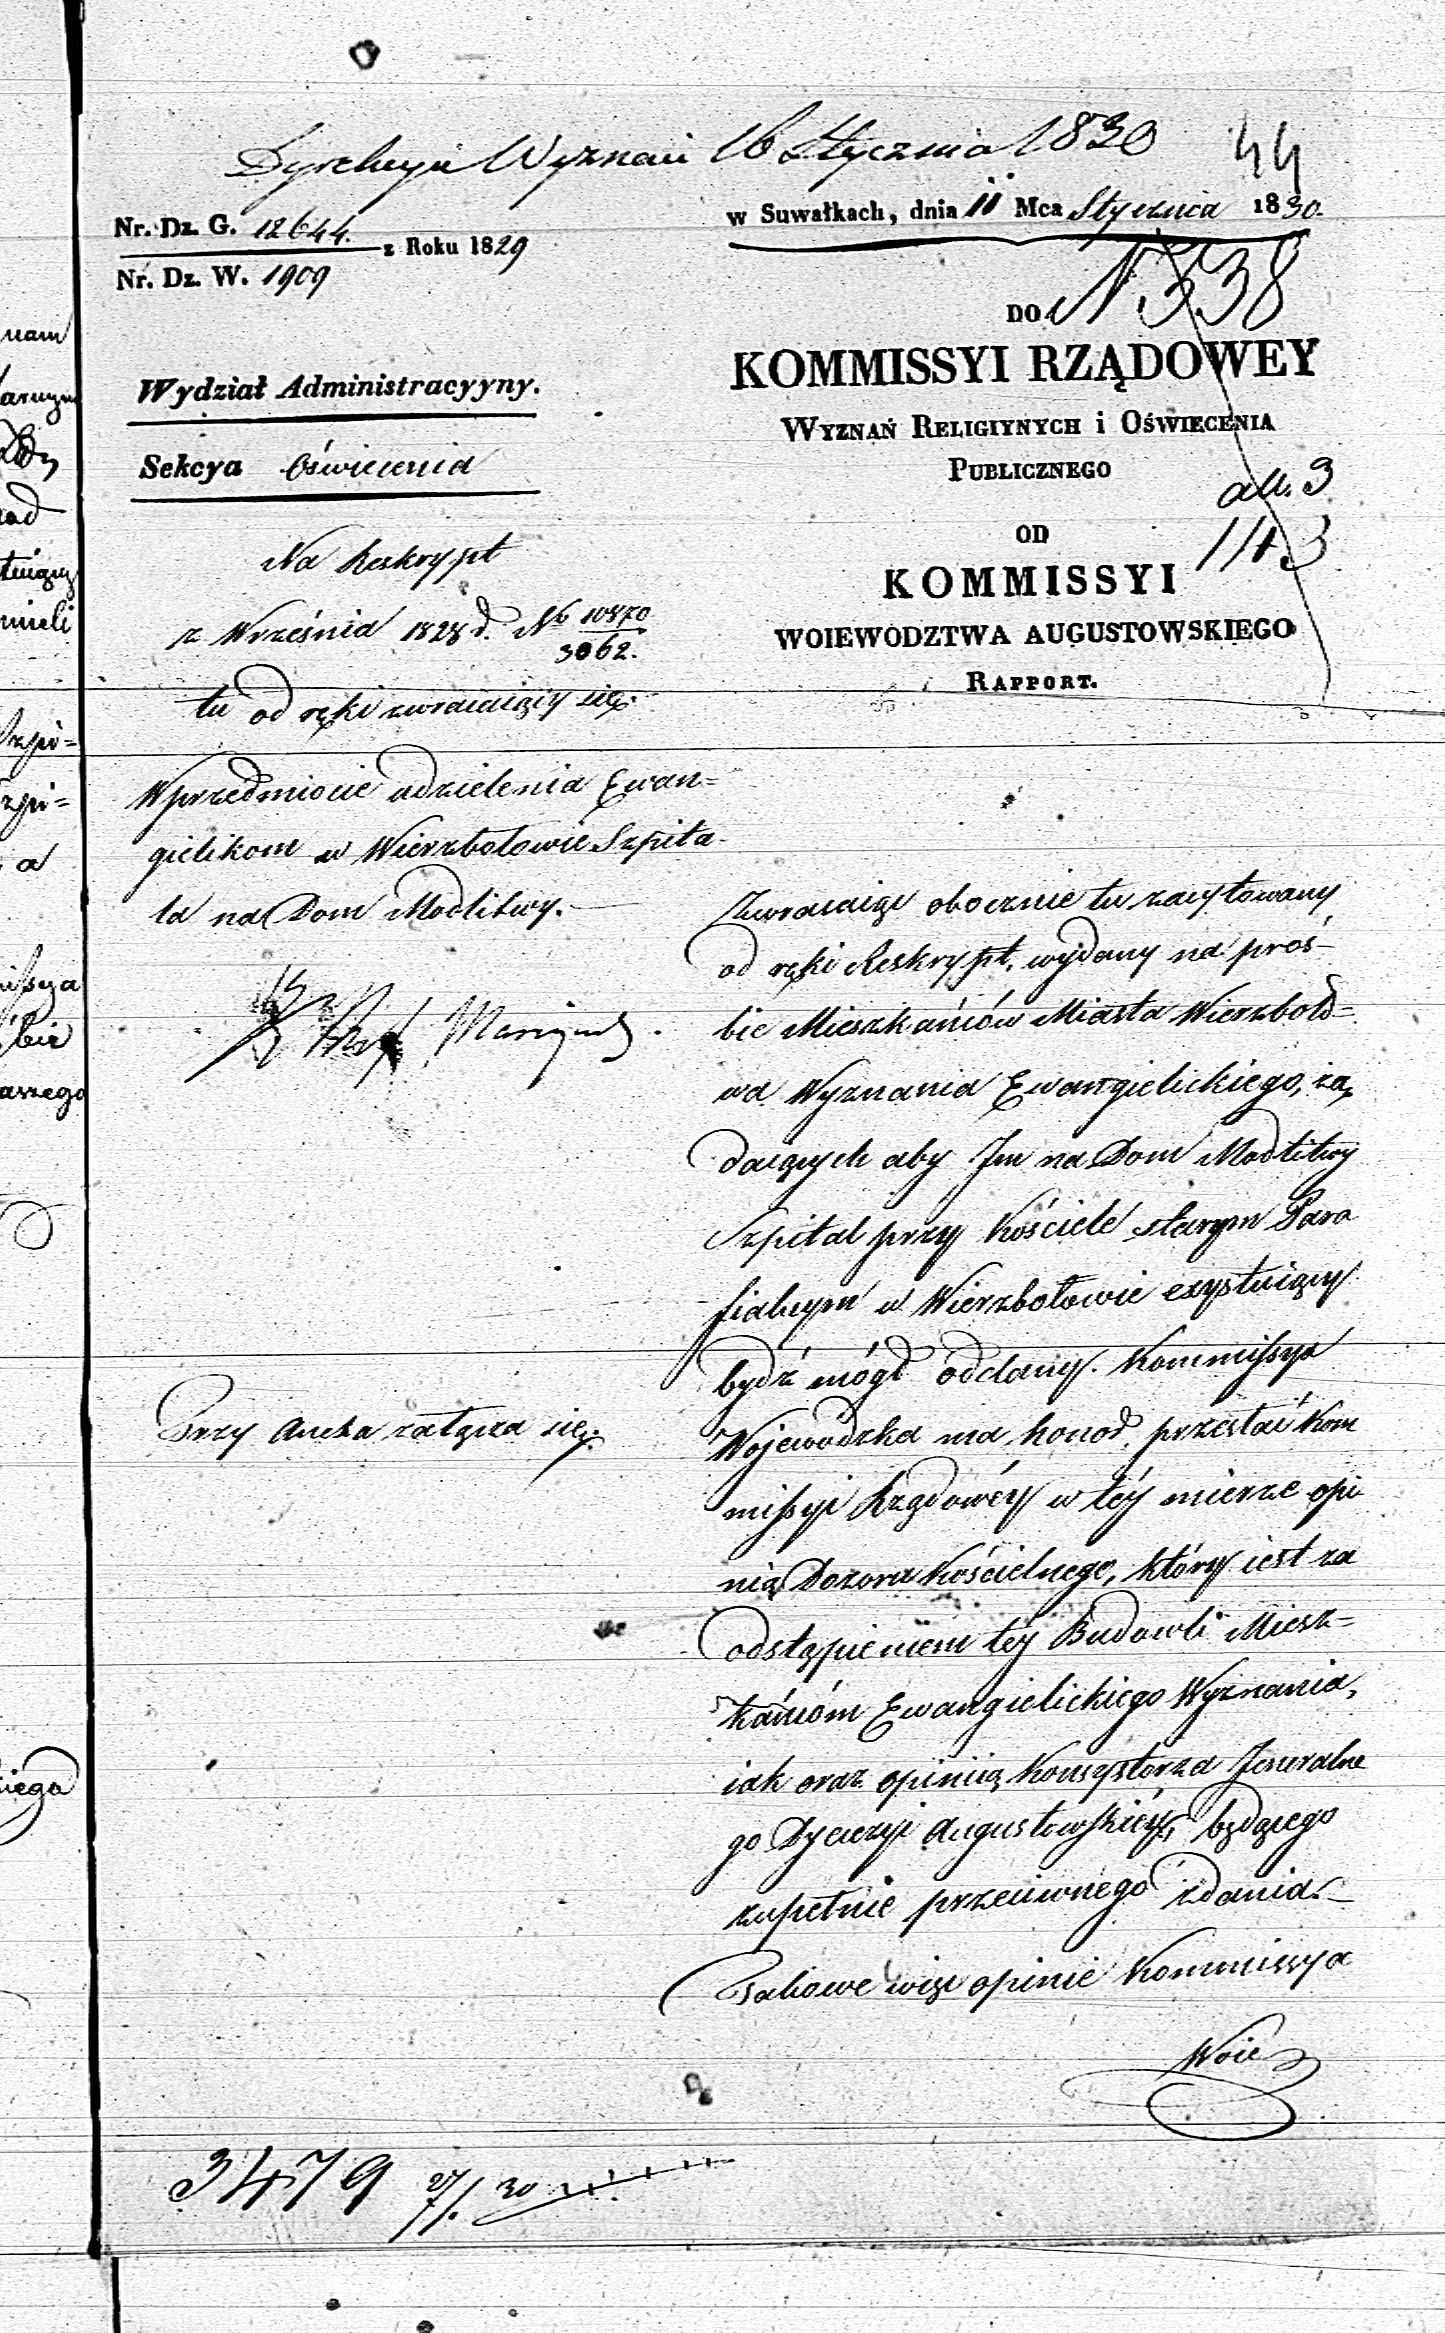 Dyrekcyi Wyznań 16 Stycznia 1830
44
w Suwałkach, dnia 11 Mca Stycznia 1830.
Nr. Dz. G. 12644.
z Roku 1829
Nr. Dz. W. 1909
DO N. 338
KOMMISSYI RZĄDOWEY
WYZNAŃ RELIGIYNYCH i OŚWIECENIA
PUBLICZNEGO
all. 3
143
OD
KOMMISSYI
WOIEWODZTWA AUGUSTOWSKIEGO
RAPPORT.
Wydział Administracyyny.
Sekcya Oświecenia
Na Reskrypt
z Września 1828 r. No 10870
3062.
tu od ręki zwracaiący się.
W przedmiocie udzielenia Ewan=
gielikom w Wierzbołowie Szpita-
la na Dom Modlitwy.
Przy anexa załącza się.
Zwracaiąc obocznie tu zacytowany
od ręki Reskrypt, wydany na proś-
bie Mieszkańców Miasta Wierzboło=
wa Wyznania Ewangielickiego, żą
daiących aby Im na Dom Modlitwy
Szpital przy Kościele starym Para
fialnym w Wierzbołowie exystuiący
bydź mógł oddany. Kommissya
Wojewódzka ma honor przesłać Kom
missyi Rządowéy w téy mierze opi
nią Dozoru Kościelnego, który iest za
odstąpieniem téy Budowli Miesz=
kańcóm Ewangielickiego Wyznania,
iak oraz opinią Konsystorza Jeneralne
go Dyecezyi Augustowskiéy, będącego
zupełnie przeciwnego zdania.
Takowe więc opinie Kommissya
Woie
3479 27/1. 30
nam
ad
mieli
Szpi=
zpi=
a
missya
bie
aszego
kiego